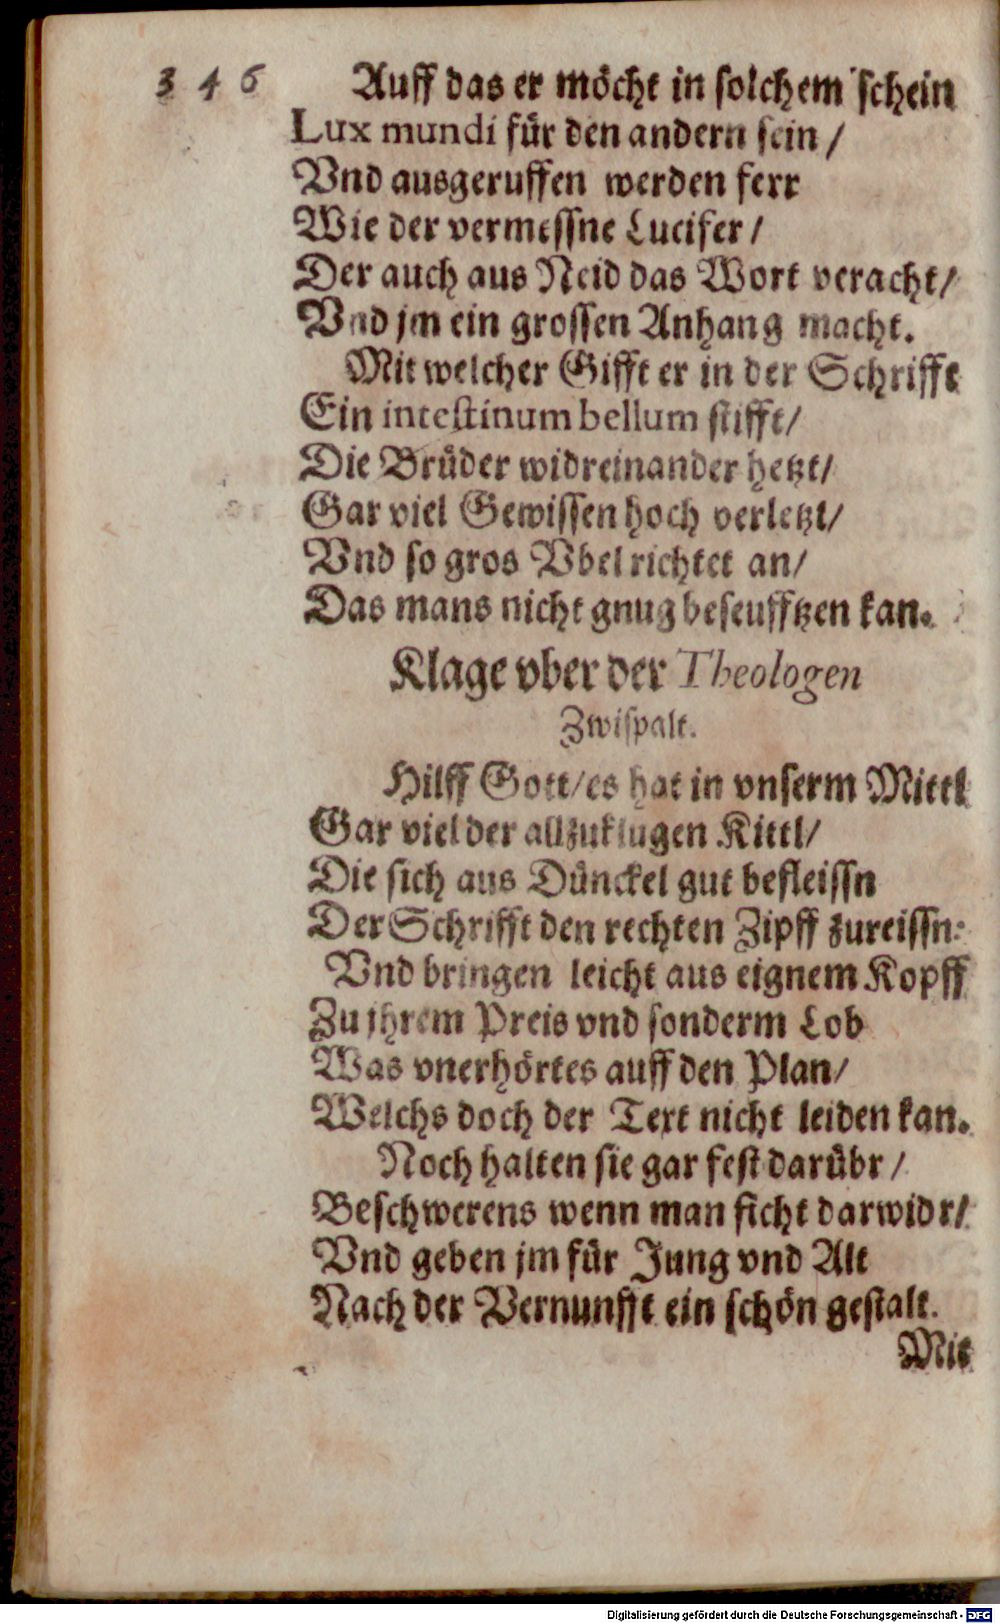 346
Auff das er möcht in solchem schein
Lux mundi für den andern sein /
Vnd ausgeruffen werden ferr
Wie der vermessne Lucifer /
Der auch aus Neid das Wort veracht /
Vnd jm ein grossen Anhang macht.
Mit welcher Gifft er in der Schrifft
Ein intestinum bellum stifft /
Die Brüder widreinander hetzt /
Gar viel Gewissen hoch verletzt /
Vnd so gros Vbel richtet an /
Das mans nicht gnug beseufftzen kan.
Klage vber der Theologen
Zwispalt.
Hilff Gott / es hat in vnserm Mittl
Gar viel der allzuklugen Kittl /
Die sich aus Dünckel gut befleissn
Der Schrifft den rechten Zipff zureissn:
Vnd bringen leicht aus eignem Kopff
Zu jhrem Preis vnd sonderm Lob
Was vnerhörtes auff den Plan /
Welchs doch der Text nicht leiden kan.
Noch halten sie gar fest darübr /
Beschwerens wenn man ficht darwidr /
Vnd geben jm für Jung vnd Alt
Nach der Vernunfft ein schön gestalt.
Mit
Digitalisierung gefördert durch die Deutsche Forschungsgemeinschaft - DFG